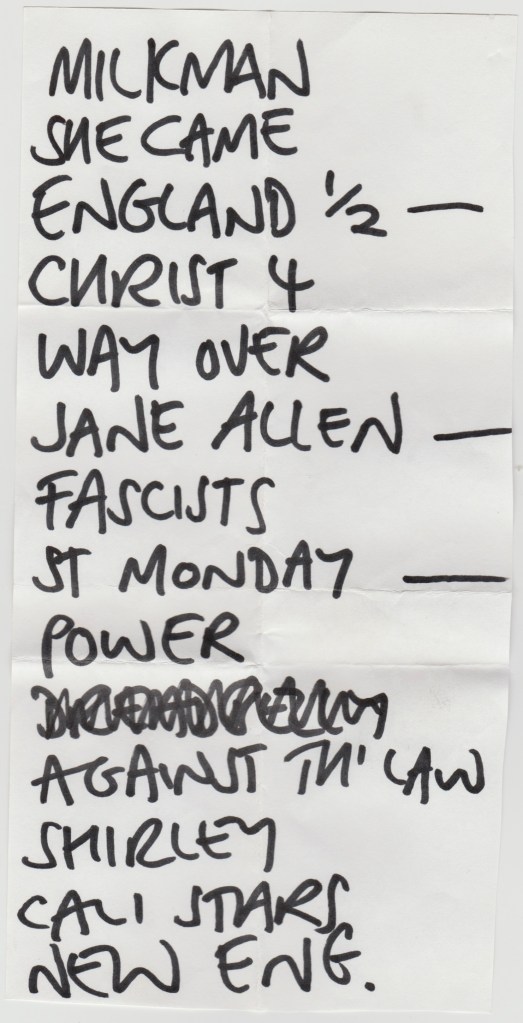 MILKMAN
SHE CAME
ENGLAND 1/2 —
CHRIST 4
WAY OVER
JANE ALLEN —
FASCISTS
ST MONDAY —
POWER
AGAINST TH' LAW
SHIRLEY
CALI STARS
NEW ENG.